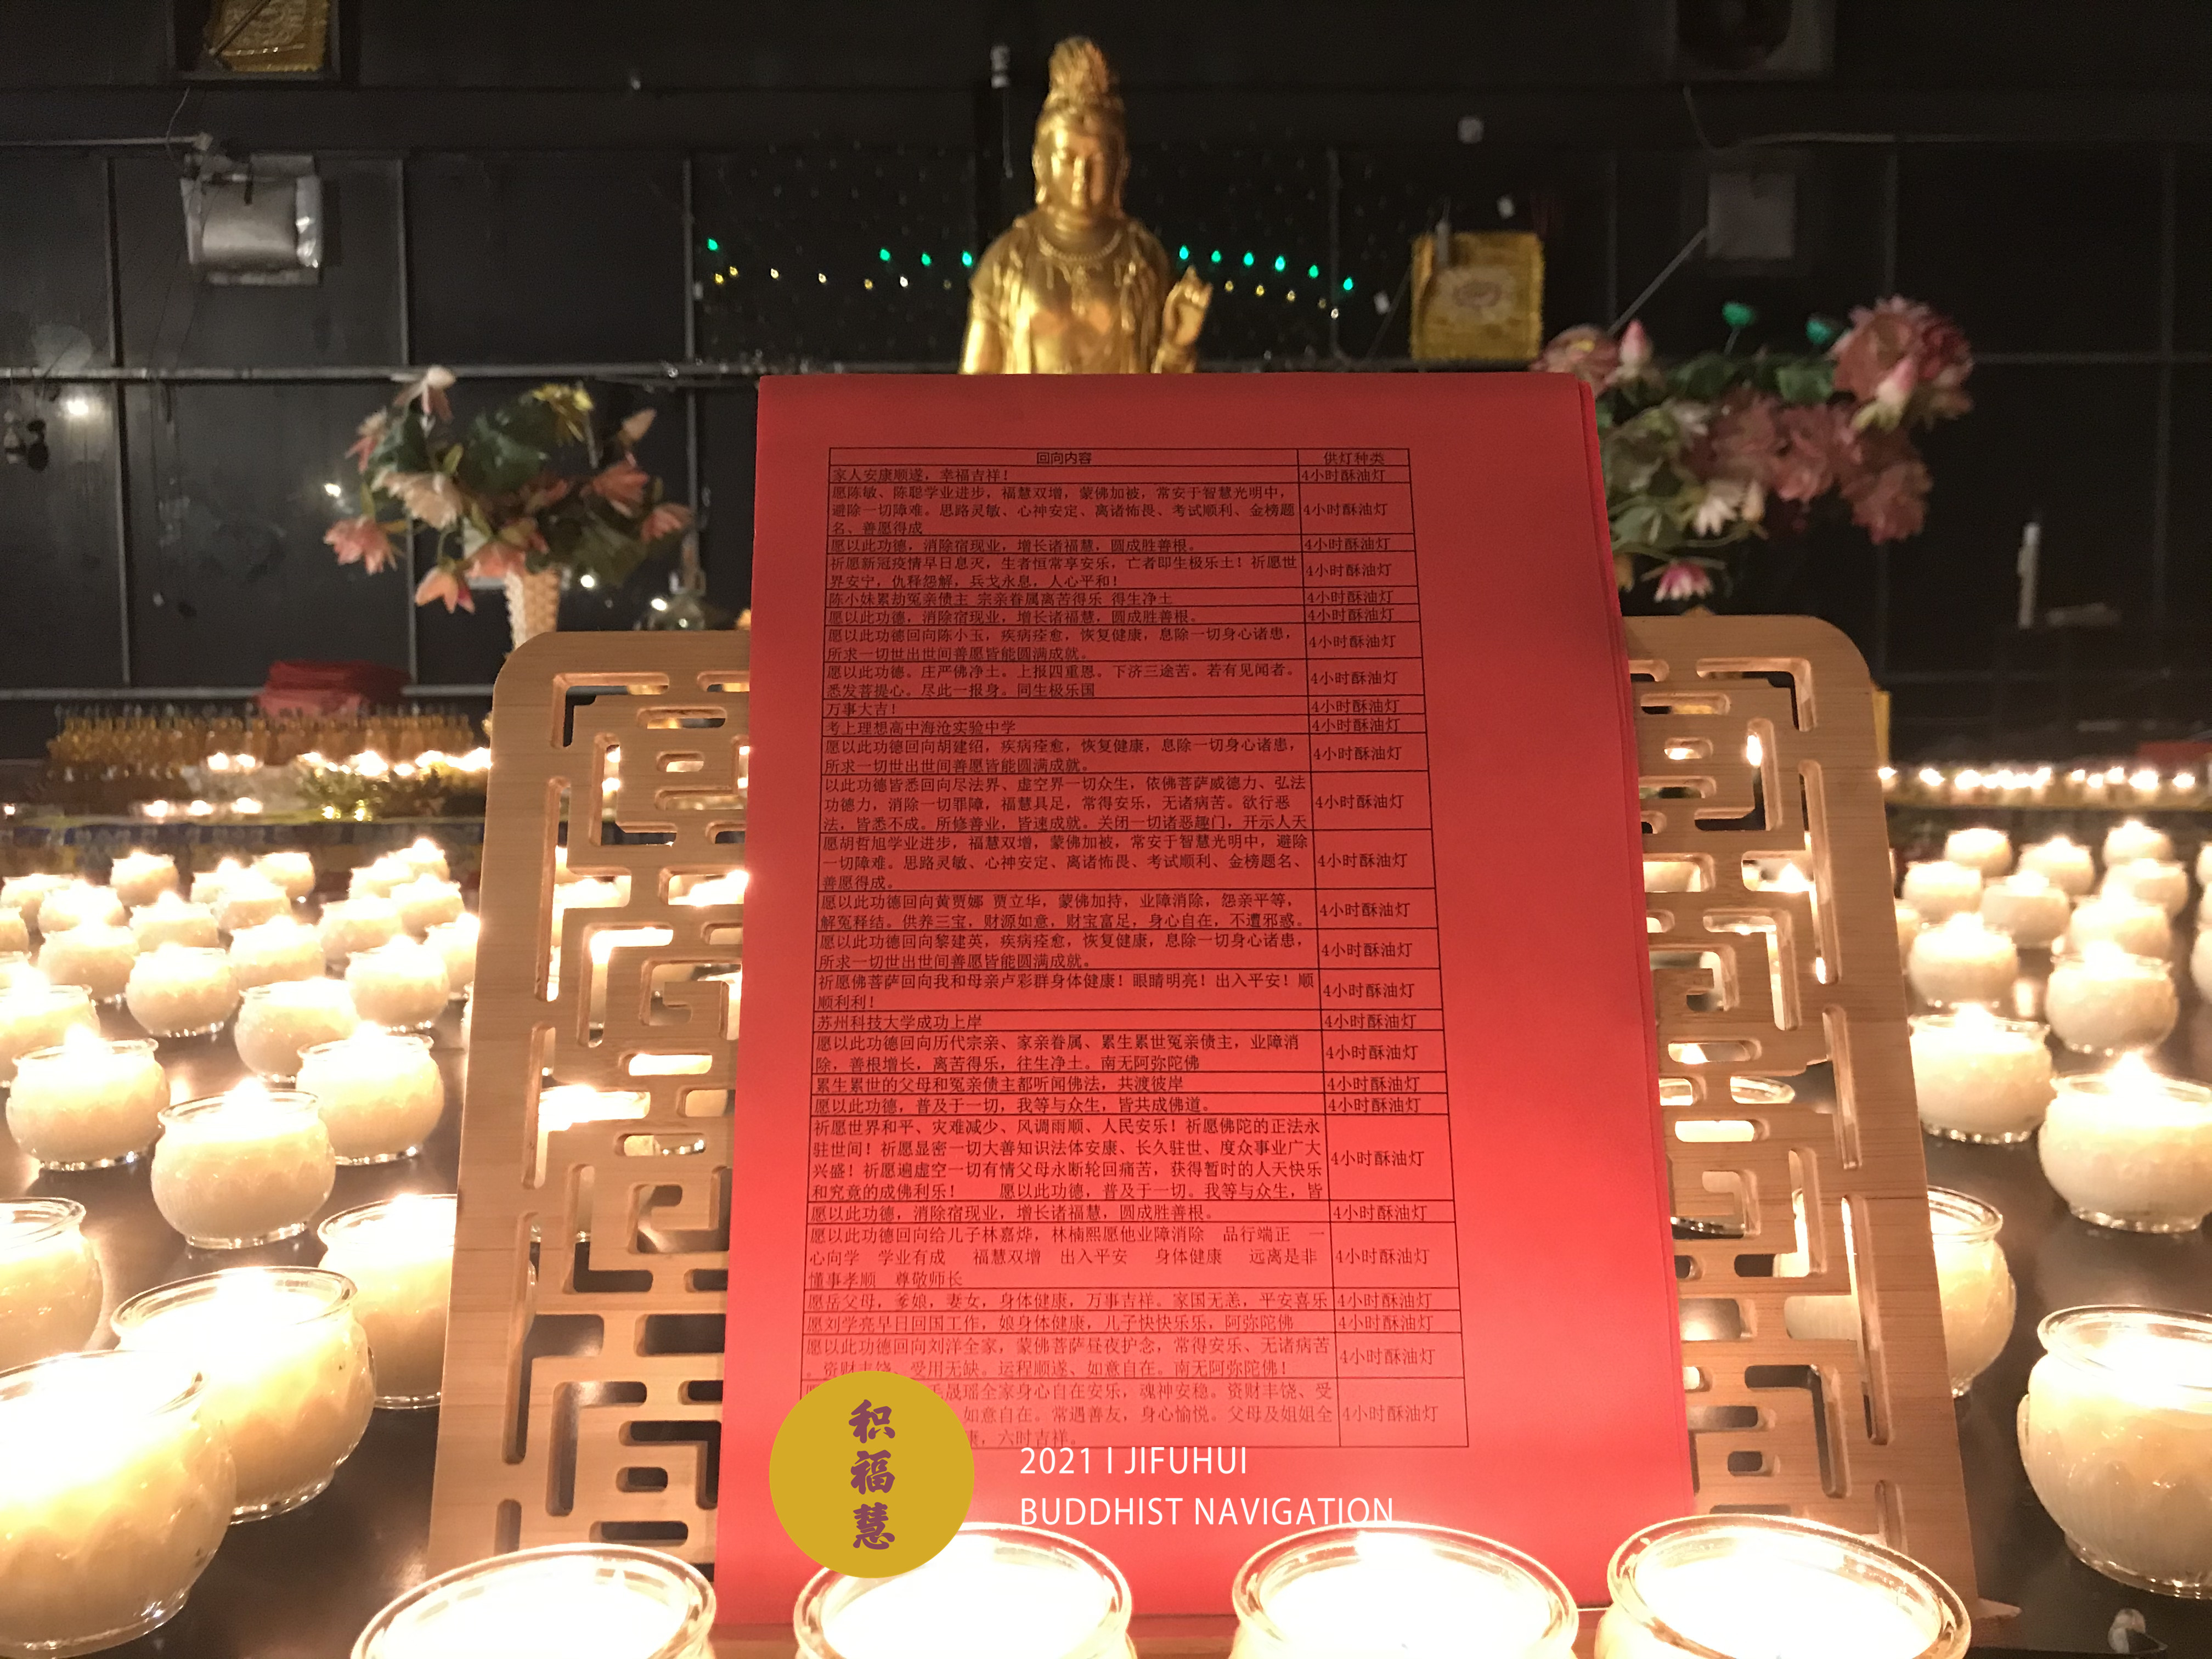 回向内容 供灯种类
家人安康顺遂，幸福吉祥！ 4小时酥油灯
愿陈敏、陈聪学业进步，福慧双增，蒙佛加被，常安于智慧光明中，
避除一切障难。思路灵敏、心神安定、离诸怖畏、考试顺利、金榜题 4小时酥油灯
名、善愿得成
愿以此功德，消除宿现业，增长诸福慧，圆成胜善根。 4小时酥油灯
祈愿新冠疫情早日息灭，生者恒常享安乐，亡者即生极乐土！祈愿世 4小时酥油灯
界安宁，仇释怨解，兵戈永息，人心平和！
陈小妹累劫冤亲债主 宗亲眷属离苦得乐 得生净土 4小时酥油灯
愿以此功德，消除宿现业，增长诸福慧，圆成胜善根。 4小时酥油灯
愿以此功德回向陈小玉，疾病痊愈，恢复健康，息除一切身心诸患， 4小时酥油灯
所求一切世出世间善愿皆能圆满成就。
愿以此功德。庄严佛净土。上报四重恩。下济三途苦。若有见闻者。 4小时酥油灯
悉发菩提心。尽此一报身。同生极乐国
万事大吉！ 4小时酥油灯
考上理想高中海沧实验中学 4小时酥油灯
愿以此功德回向胡建绍，疾病痊愈，恢复健康，息除一切身心诸患， 4小时酥油灯
所求一切世出世间善愿皆能圆满成就。
以此功德皆悉回向尽法界、虚空界一切众生，依佛菩萨威德力、弘法
功德力，消除一切罪障，福慧具足，常得安乐，无诸病苦。欲行恶 4小时酥油灯
法，皆悉不成。所修善业，皆速成就。关闭一切诸恶趣门，开示人天
愿胡哲旭学业进步，福慧双增，蒙佛加被，常安于智慧光明中，避除
一切障难。思路灵敏、心神安定、离诸怖畏、考试顺利、金榜题名、 4小时酥油灯
善愿得成。
愿以此功德回向黄贾娜 贾立华，蒙佛加持，业障消除，怨亲平等， 4小时酥油灯
解冤释结。供养三宝，财源如意，财宝富足，身心自在，不遭邪惑。
愿以此功德回向黎建英，疾病痊愈，恢复健康，息除一切身心诸患， 4小时酥油灯
所求一切世出世间善愿皆能圆满成就。
祈愿佛菩萨回向我和母亲卢彩群身体健康！眼睛明亮！出入平安！顺 4小时酥油灯
顺利利！
苏州科技大学成功上岸 4小时酥油灯
愿以此功德回向历代宗亲、家亲眷属、累生累世冤亲债主，业障消 4小时酥油灯
除，善根增长，离苦得乐，往生净土。南无阿弥陀佛
累生累世的父母和冤亲债主都听闻佛法，共渡彼岸 4小时酥油灯
愿以此功德，普及于一切，我等与众生，皆共成佛道。 4小时酥油灯
祈愿世界和平、灾难减少、风调雨顺、人民安乐！祈愿佛陀的正法永
驻世间！祈愿显密一切大善知识法体安康、长久驻世、度众事业广大 4小时酥油灯
兴盛！祈愿遍虚空一切有情父母永断轮回痛苦，获得暂时的人天快乐
和究竟的成佛利乐！ 愿以此功德，普及于一切。我等与众生，皆
愿以此功德，消除宿现业，增长诸福慧，圆成胜善根。 4小时酥油灯
愿以此功德回向给儿子林嘉烨，林楠熙愿他业障消除 品行端正 一
心向学 学业有成 福慧双增 出入平安 身体健康 远离是非 4小时酥油灯
懂事孝顺 尊敬师长
愿岳父母，爹娘，妻女，身体健康，万事吉祥。家国无恙，平安喜乐 4小时酥油灯
愿刘学亮早日回国工作，娘身体健康，儿子快快乐乐，阿弥陀佛 4小时酥油灯
愿以此功德回向刘洋全家，蒙佛菩萨昼夜护念，常得安乐、无诸病苦 4小时酥油灯
。资财丰饶、受用无缺。运程顺遂、如意自在。南无阿弥陀佛！
晟瑶全家身心自在安乐，魂神安稳。资财丰饶、受
如意自在。常遇善友，身心愉悦。父母及姐姐全 4小时酥油灯
康，六时吉祥。
积福慧
2021 I JIFUHUI
BUDDHIST NAVIGATION